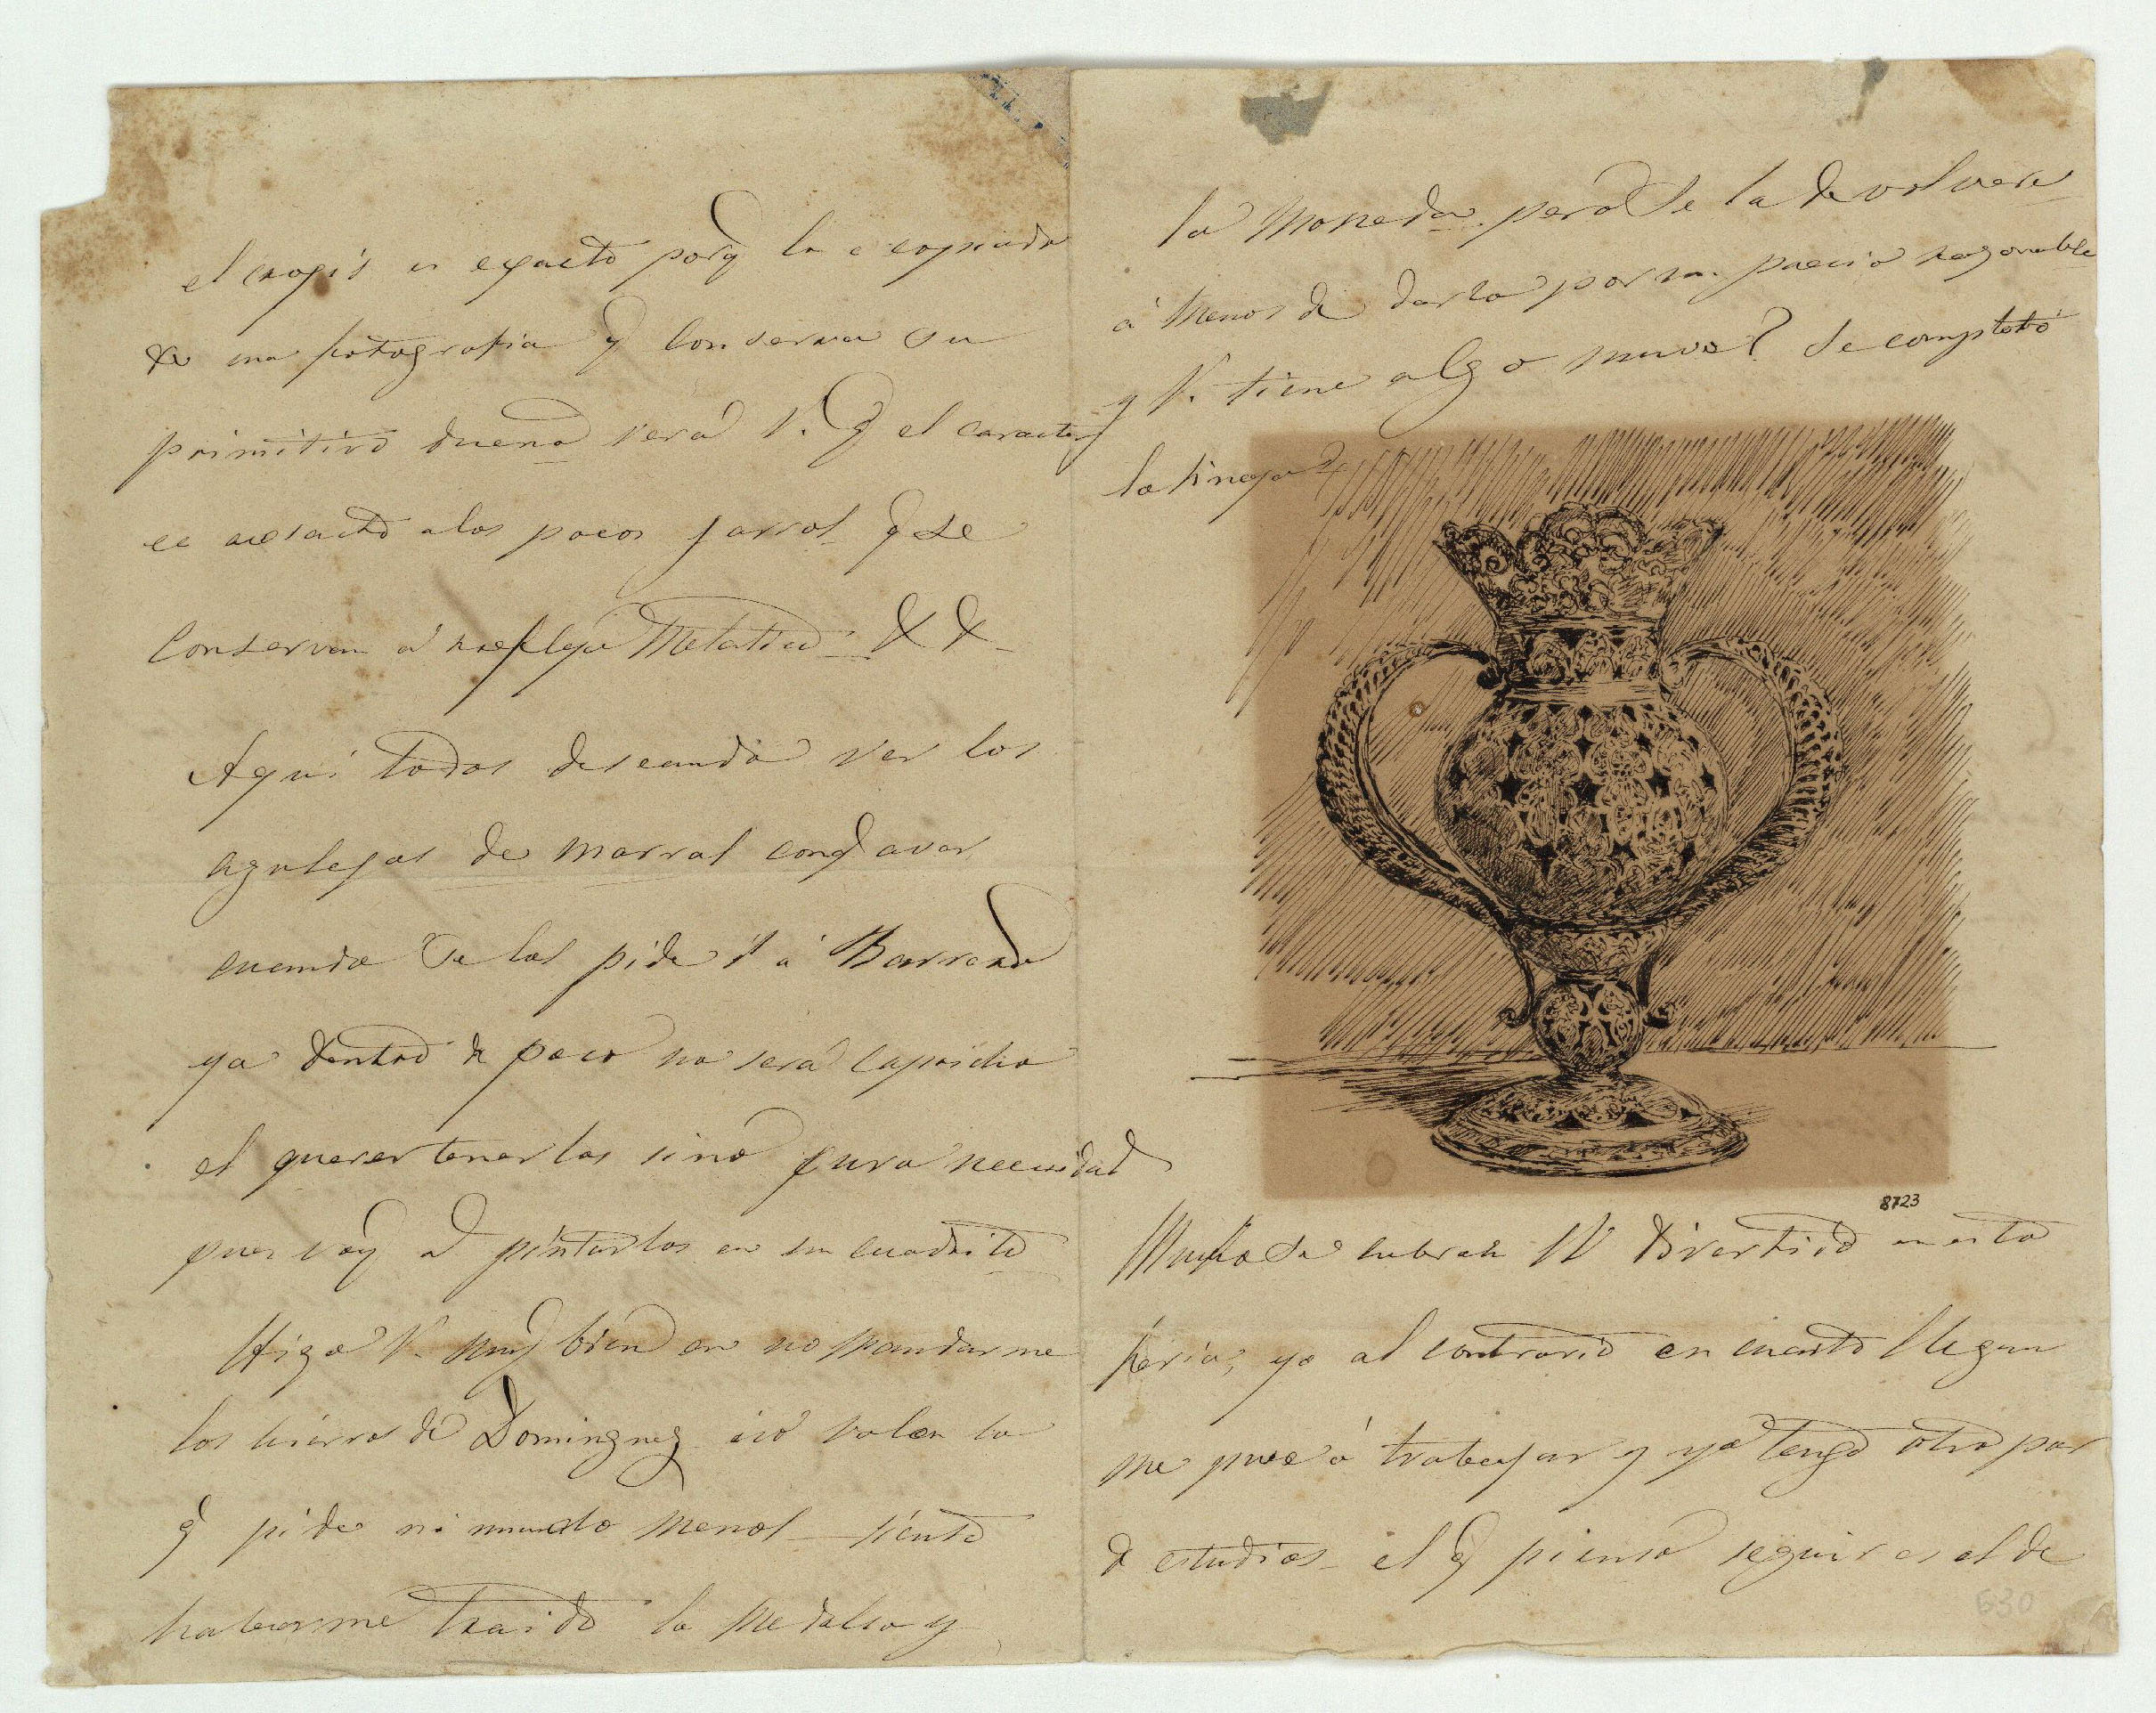 el croqis es exacto porq la e copiado
de una fotografia q conserva su
primitivo dueno verá V. q el caracter
es exsacto a los pocos jarros q se
conservan á reflejo Metalico XX
Aqui todos deseando ver los
azulejos de marras conq a ver
cuando se los pide V á Barrera
ya dentro de poco no será capricho
el querer tenerlos sino pura necesidad
pues voy á pintarlos en un cuadrito
Hizo V. muy bien en no mandarme
los hierros de Dominguez valen lo
q pide ni mucho menos siento
haberme traido la Medalla y
la Moneda pero se la devolvere
á menos de darla por un precio razonable
y V. tiene algo nuevo? Se completó
la tinaja?
8723
Mucho se habran VV divertido en esta
feria, yo al contrario en cuanto llegue
me puse á trabajar y ya tengo otro par
de estudios el q pienso seguir es el de
630